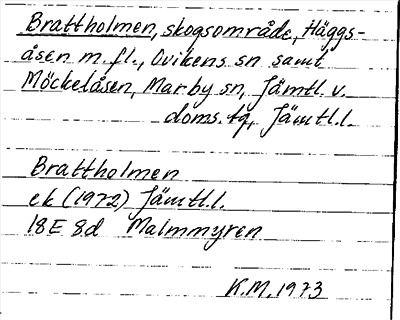 Brattholmen, skogsområde, Häggs-
åsen m.fl., Ovikens sn samt
Möckelåsen, Marby sn, Jämtl. v.
doms.tg, Jämtl.l.
Brattholmen
ek (1972) Jämtl.l.
18E 8d Malmmyren
K.M. 1973